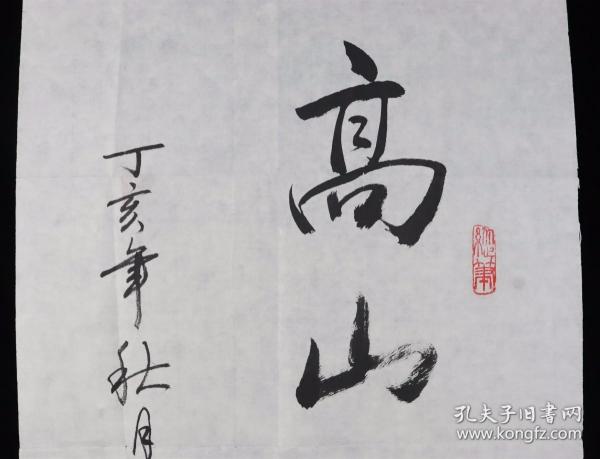 高山
丁亥年秋月
孔夫子旧書网
www.kongfz.com